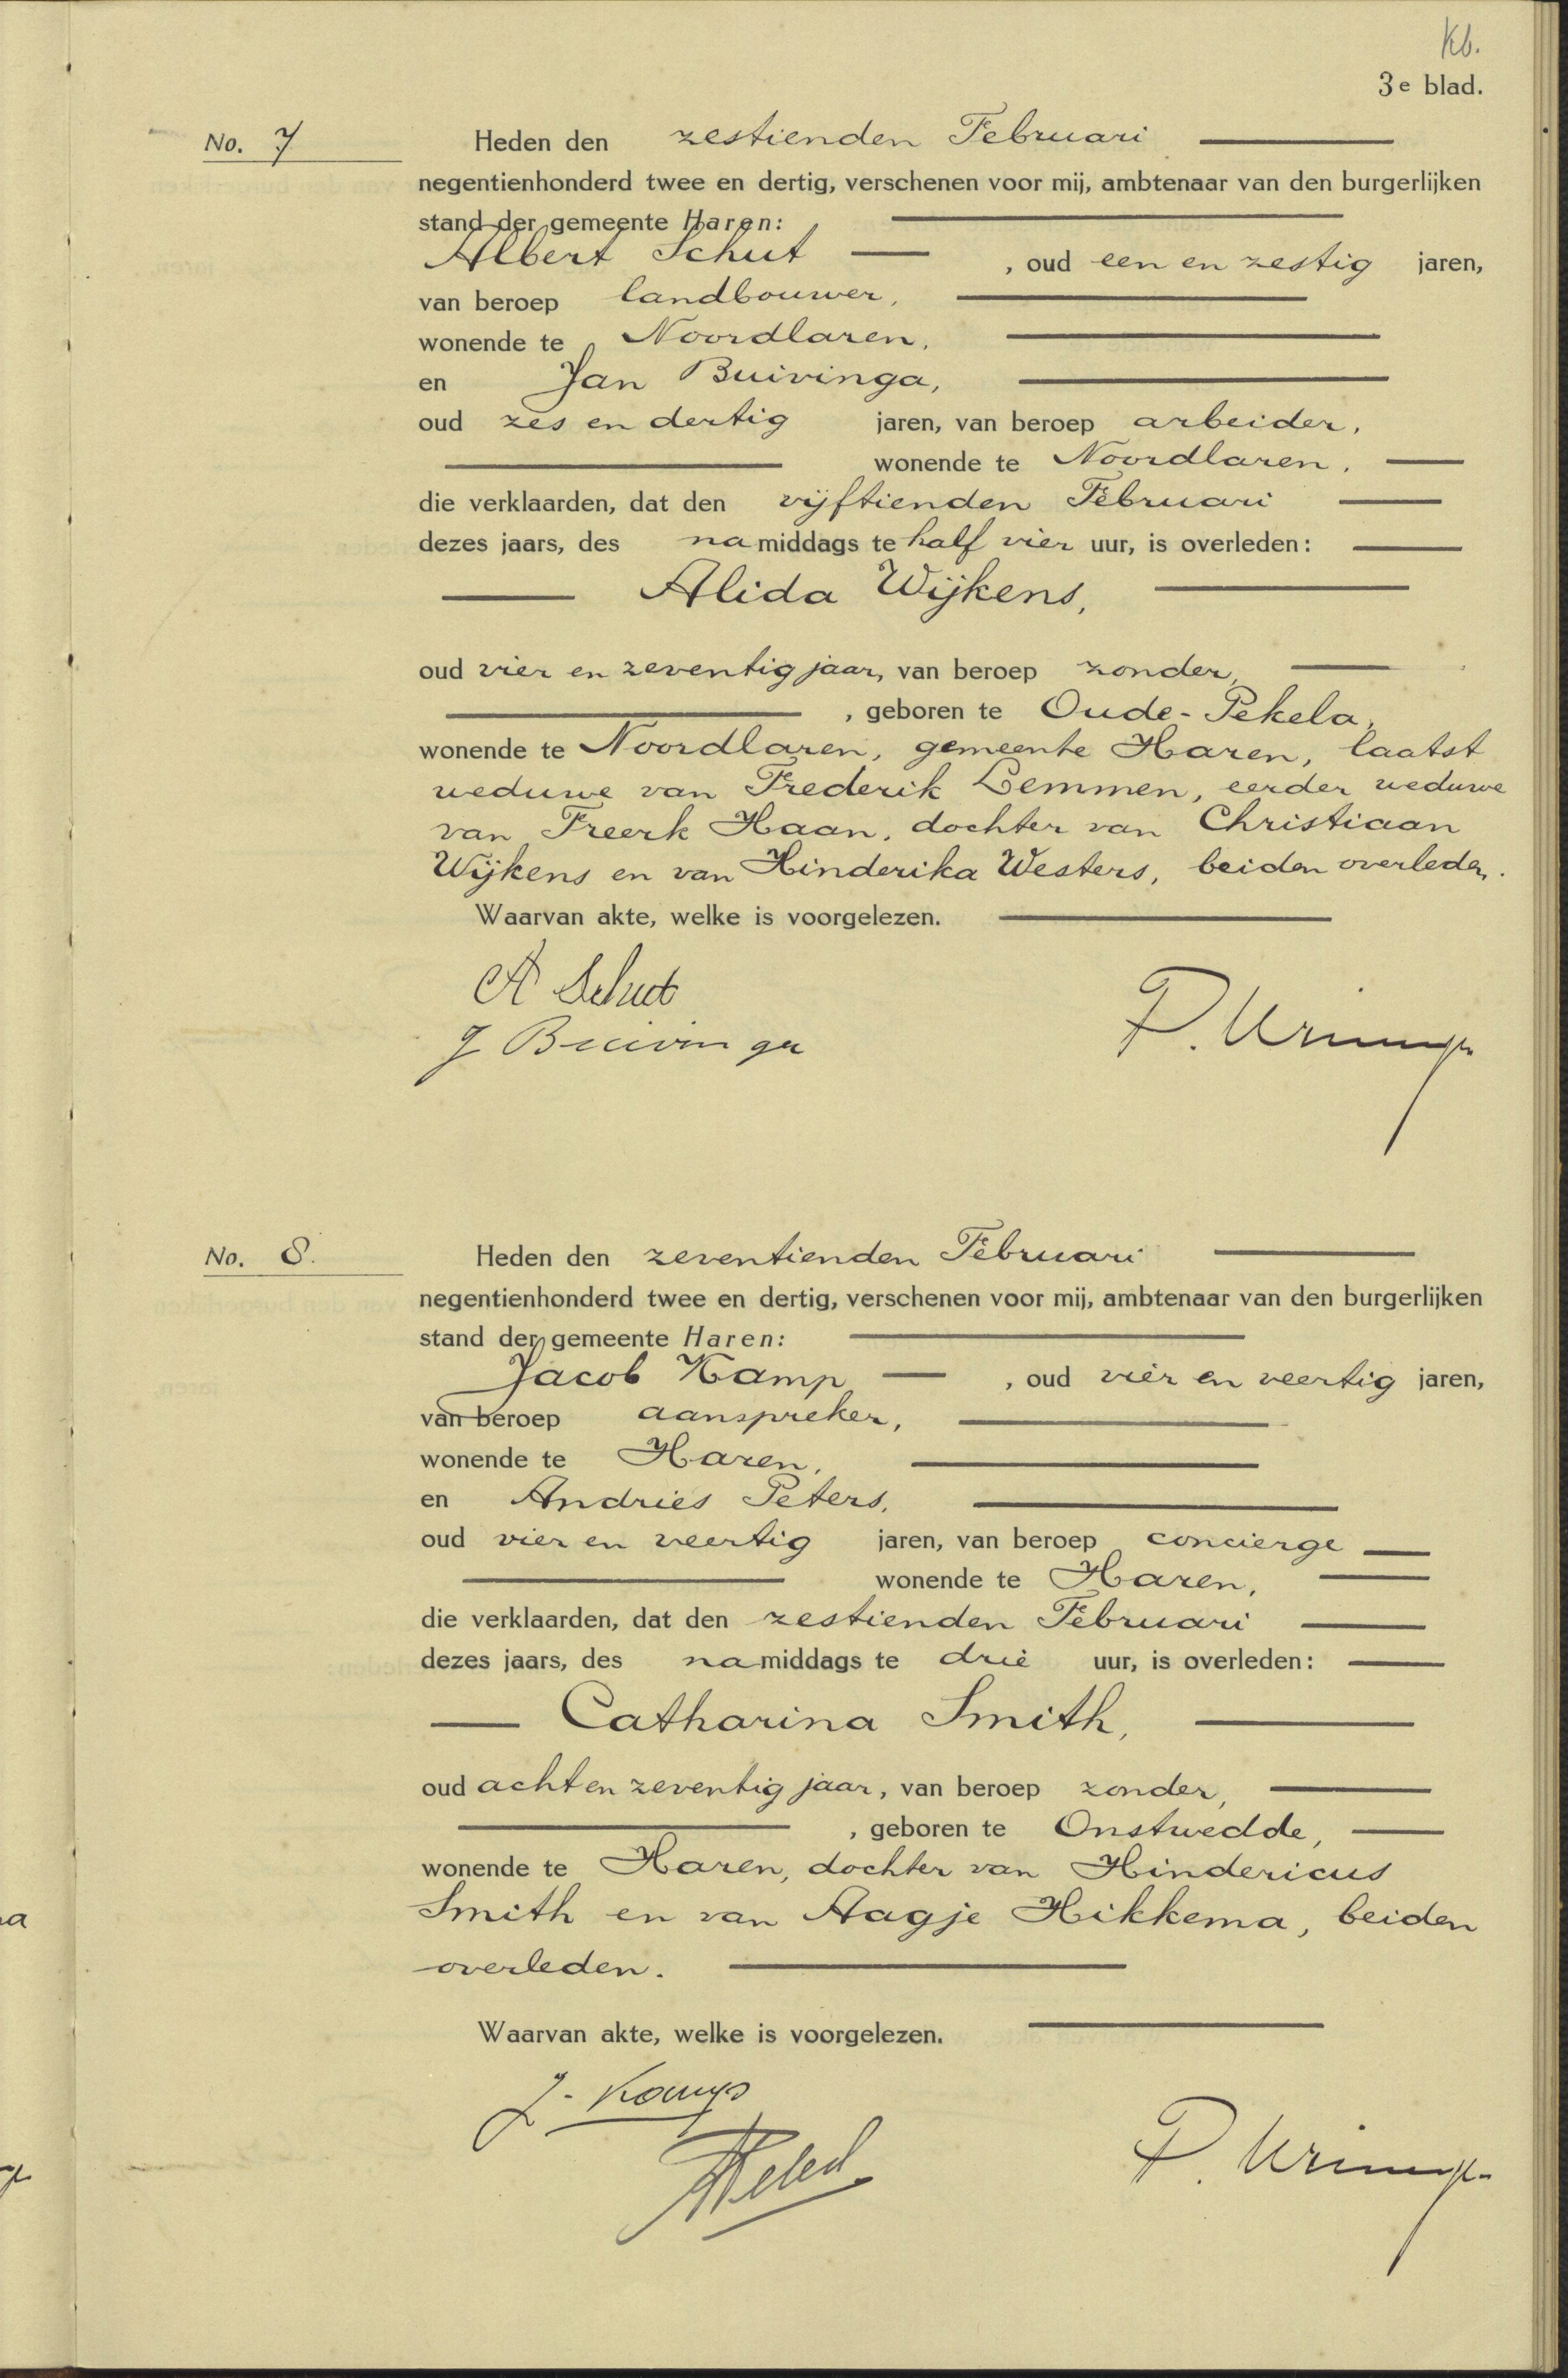 kb.
3e blad.
No. 7
Heden den zestienden Februari
negentienhonderd twee en dertig, verschenen voor mij, ambtenaar van den burgerlijken
stand der gemeente Haren:
Albert Schut , oud een en zestig jaren,
van beroep landbouwer,
wonende te Noordlaren,
en Jan Buivinga,
oud zes en dertig jaren, van beroep arbeider,
wonende te Noordlaren,
die verklaarden, dat den vijftienden Februari
dezes jaars, des namiddags te half vier uur, is overleden:
Alida Wijkens,
oud vier en zeventig jaar, van beroep zonder,
, geboren te Oude-Pekela,
wonende te Noordlaren, gemeente Haren, laatst
weduwe van Frederik Lemmen, eerder weduwe
van Freerk Haan, dochter van Christiaan
Wijkens en van Hinderika Westers, beiden overleden.
Waarvan akte, welke is voorgelezen.
A Schut
J Buivinga
No. 8.
Heden den zeventienden Februari
negentienhonderd twee en dertig, verschenen voor mij, ambtenaar van den burgerlijken
stand der gemeente Haren:
Jacob Kamp , oud vier en veertig jaren,
van beroep aanspreker,
wonende te Haren,
en Andries Peters,
oud vier en veertig jaren, van beroep concierge
wonende te Haren,
die verklaarden, dat den zestienden Februari
dezes jaars, des namiddags te drie uur, is overleden:
Catharina Smith,
oud acht en zeventig jaar, van beroep zonder,
, geboren te Onstwedde,
wonende te Haren, dochter van Hindericus
Smith en van Aagje Hikkema, beiden
overleden.
Waarvan akte, welke is voorgelezen.
J. Kamp